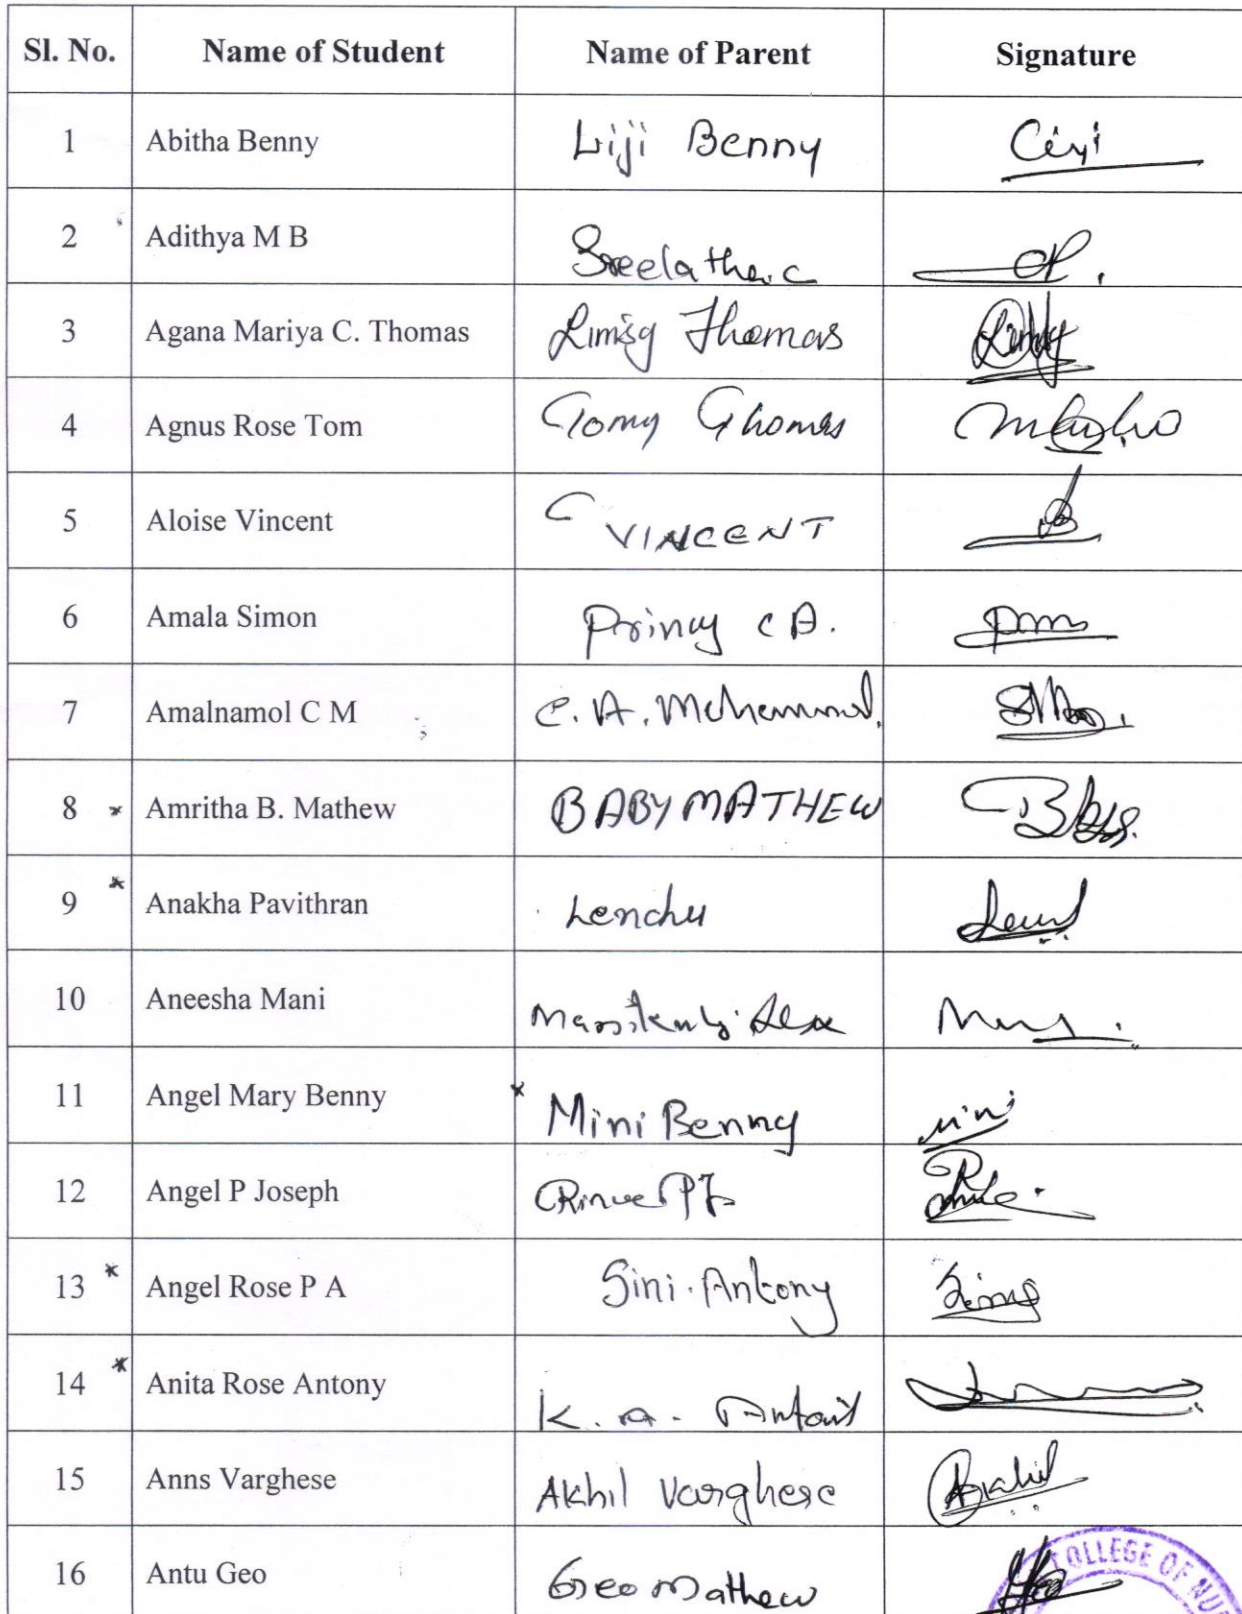 Sl. No. Name of Student Name of Parent Signature
1 Abitha Benny Liji Benny
2 Adithya M B Sreelatha.c
3 Agana Mariya C. Thomas Limsy Thomas
4 Agnus Rose Tom Tomy Thomas
5 Aloise Vincent VINCENT
6 Amala Simon Princy C A.
7 Amalnamol C M C. A. Mohammed.
8 Amritha B. Mathew BABY MATHEW
9 Anakha Pavithran Lenchu
10 Aneesha Mani
11 Angel Mary Benny Mini Benny Mini
12 Angel P Joseph
13 Angel Rose P A Sini Antony
14 Anita Rose Antony K. A.
15 Anns Varghese Akhil Varghese Akhil
16 Antu Geo Geo Mathew
COLLEGE OF NUR